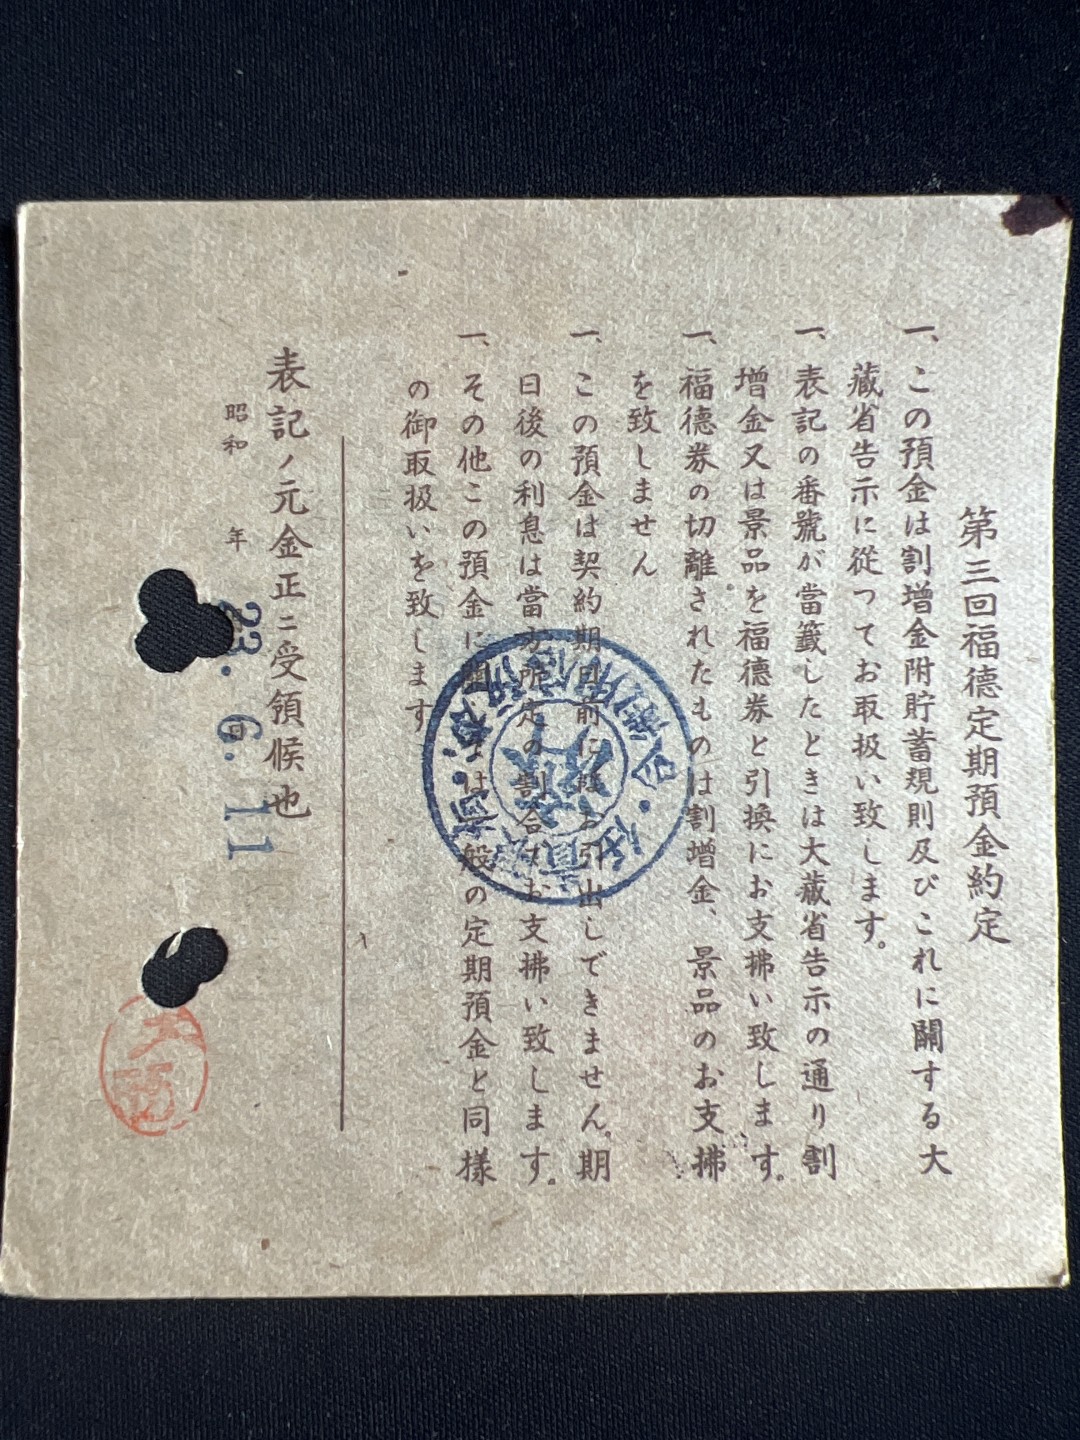 第三回福德定期預金約定
一、この預金は割增金附貯蓄規則及びこれに關する大
藏省告示に從つてお取扱い致します。
一、表記の番號が當籤したときは大藏省告示の通り割
增金又は景品を福德券と引換にお支拂い致します。
一、福德券の切離されたものは割增金、景品のお支拂
を致しません
一、この預金は契約期日前に引出しできません。期
日後の利息は當所定の割合でお支拂い致します。
一、その他この預金には一般の定期預金と同樣
の御取扱いを致します
表記ノ元金正ニ受領候也
昭和 年
23. 6. 11